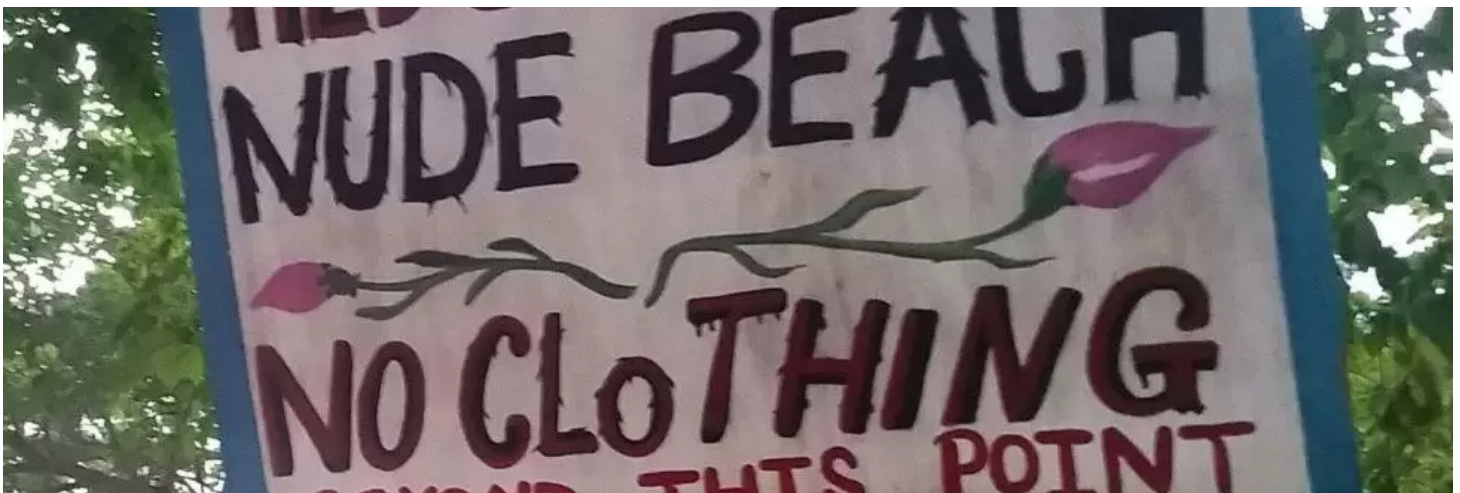 NUDE BEACH
NO CLoTHING
BEYOND THIS POINT